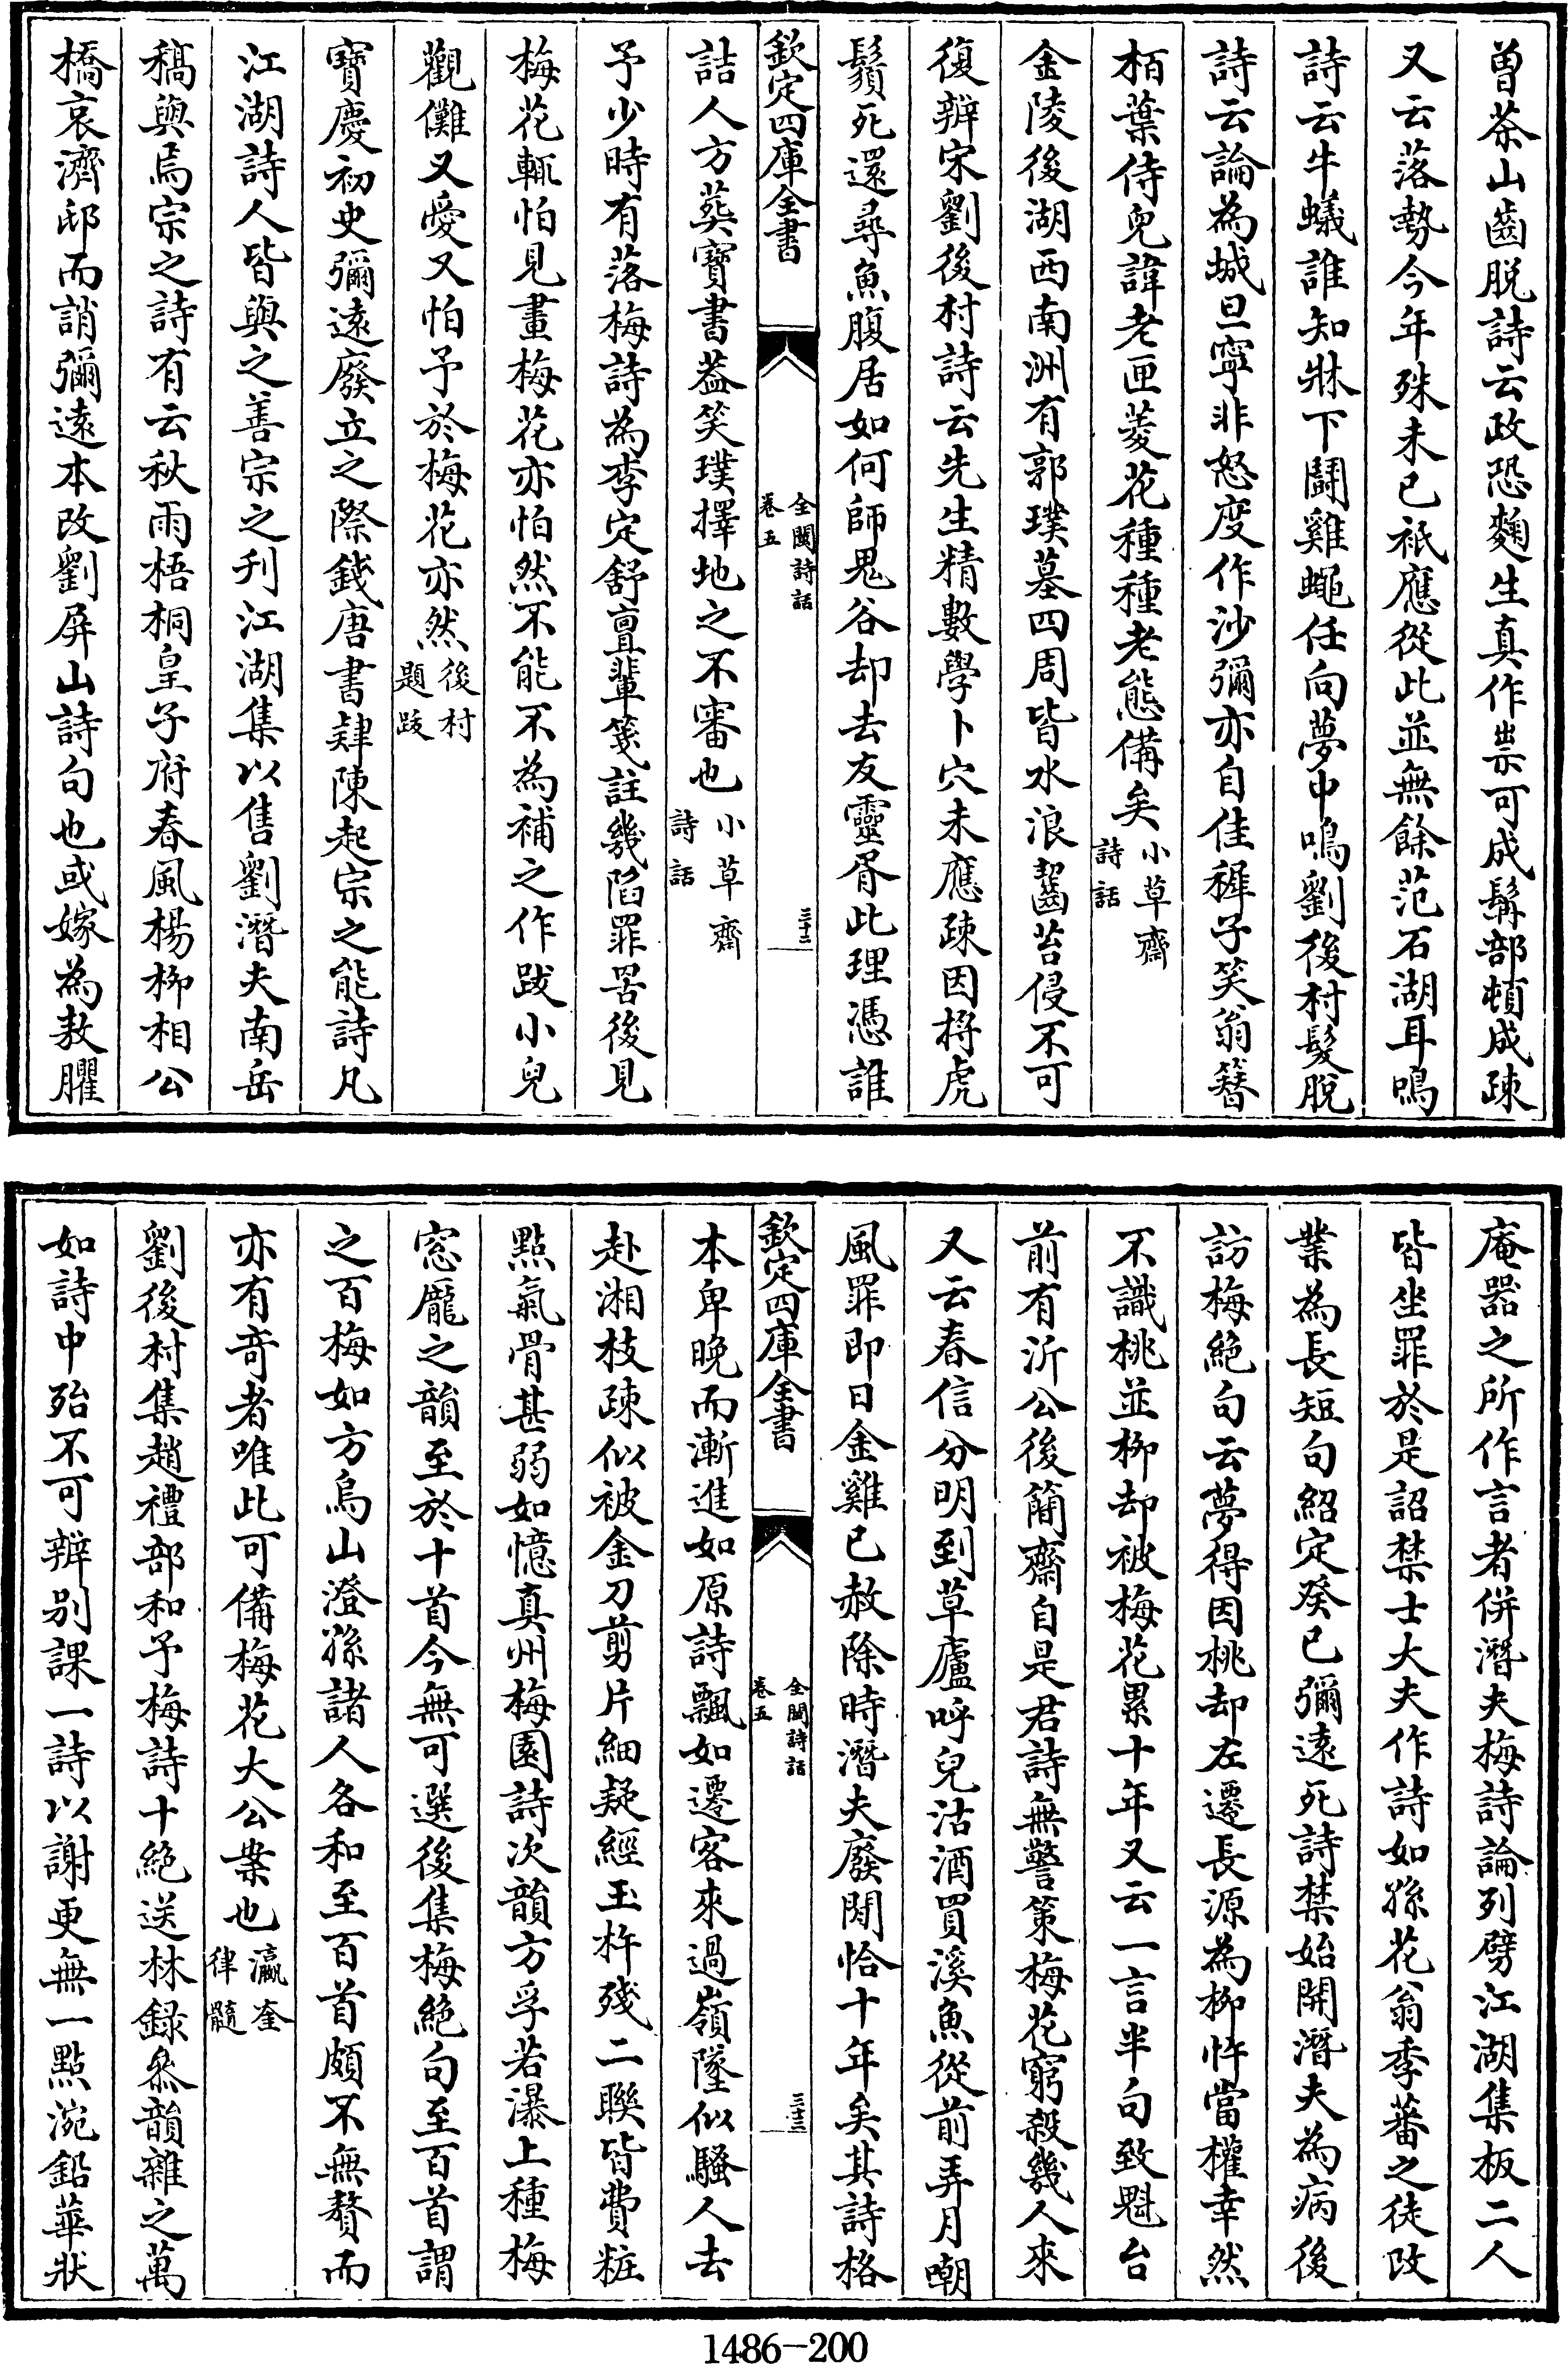 曾茶山齒脱詩云政恐麴生真作祟可成髯部頓成疎
又云落勢今年殊未已祇應從此並無餘范石湖耳鳴
詩云牛蟻誰知牀下鬬雞蠅任向夢中鳴劉後村髮脱
詩云論為城旦寧非怒度作沙彌亦自佳穉子笑翁簪
栢葉侍兒諱老匣菱花種種老態備矣小草齋詩話
金陵後湖西南洲有郭璞墓四周皆水浪齧苔侵不可
復辨宋劉後村詩云先生精數學卜穴未應疎因捋虎
鬚死還尋魚腹居如何師鬼谷却去友靈胥此理憑誰
欽定四庫全書
全閩詩話
卷五
三十二
詰人方葬寶書葢笑璞擇地之不審也小草齋詩話
予少時有落梅詩為李定舒亶輩箋註幾陷罪罟後見
梅花輒怕見畫梅花亦怕然不能不為補之作跋小兒
觀儺又愛又怕予於梅花亦然後村題跋
寶慶初史彌遠廢立之際錢唐書肆陳起宗之能詩凡
江湖詩人皆與之善宗之刋江湖集以售劉潛夫南岳
稿與焉宗之詩有云秋雨梧桐皇子府春風楊柳相公
橋哀濟邸而誚彌遠本改劉屏山詩句也或嫁為敖臞
庵器之所作言者併潛夫梅詩論列劈江湖集板二人
皆坐罪於是詔禁士大夫作詩如孫花翁季蕃之徒改
業為長短句紹定癸已彌遠死詩禁始開潛夫為病後
訪梅絶句云夢得因桃却左遷長源為柳忤當權幸然
不識桃並柳却被梅花累十年又云一言半句致魁台
前有沂公後簡齋自是君詩無警策梅花窮殺幾人來
又云春信分明到草廬呼兒沽酒買溪魚從前弄月嘲
風罪即日金雞已赦除時潛夫廢閒恰十年矣其詩格
欽定四庫全書
全閩詩話
卷五
三十三
本卑晚而漸進如原詩飄如遷客來過嶺墜似騷人去
赴湘枝疎似被金刀剪片細疑經玉杵殘二聯皆費粧
點氣骨甚弱如憶真州梅園詩次韻方孚若瀑上種梅
窓龎之韻至於十首今無可選後集梅絶句至百首謂
之百梅如方烏山澄孫諸人各和至百首頗不無贅而
亦有竒者唯此可備梅花大公案也瀛奎律髓
劉後村集趙禮部和予梅詩十絶送林録叅韻雜之萬
如詩中殆不可辨别課一詩以謝更無一點涴鉛華狀
1486-200